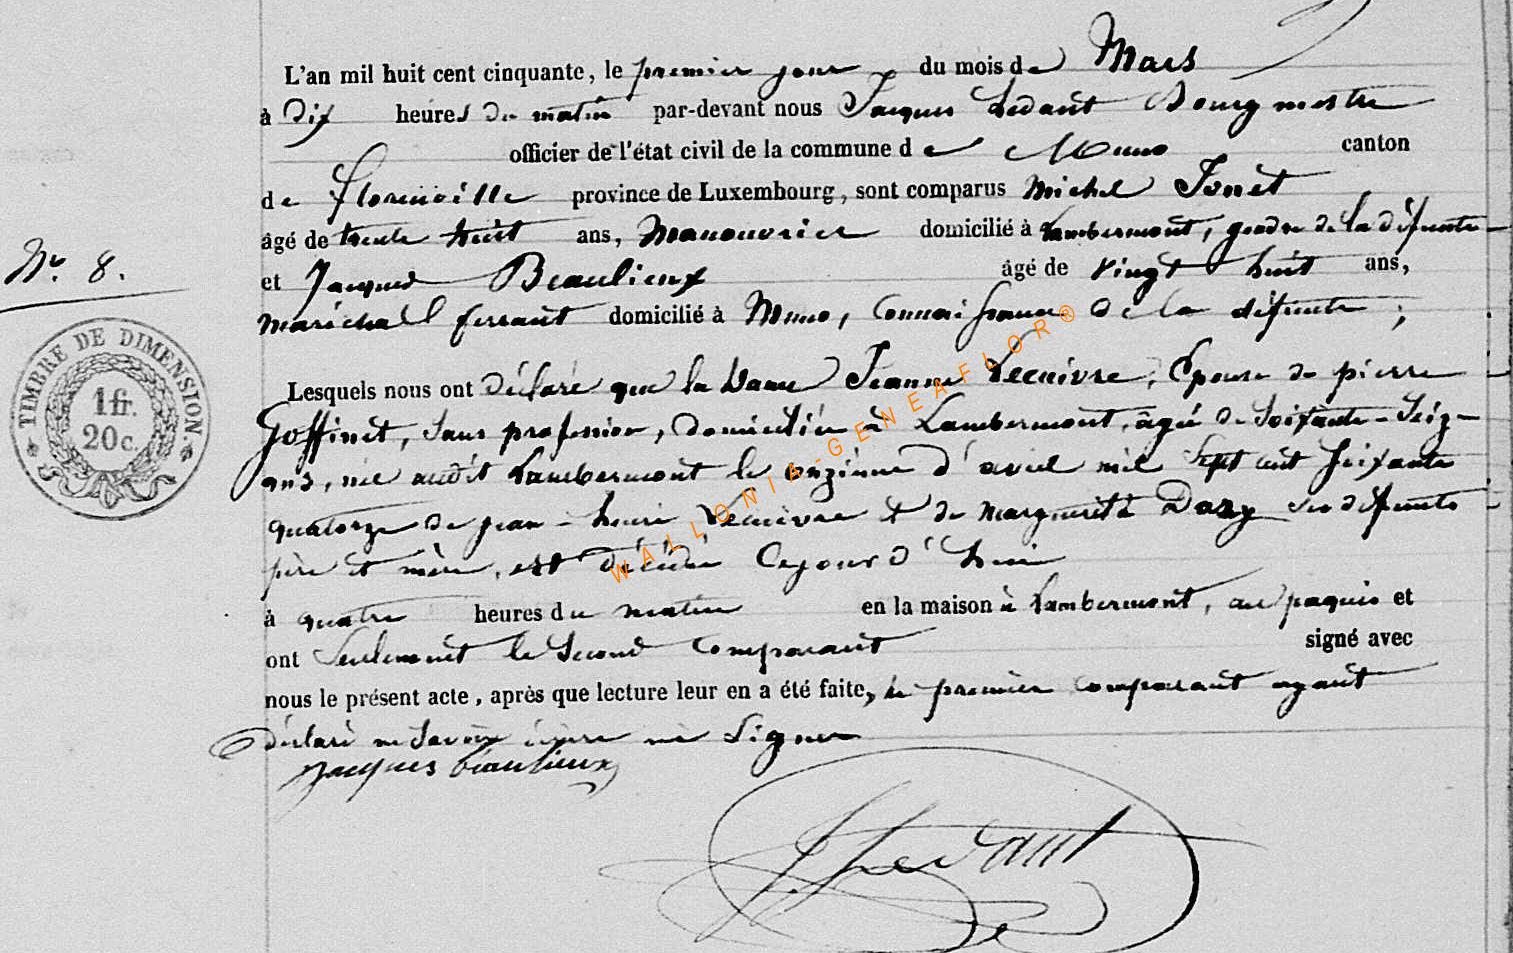 L'an mil huit cent cinquante, le premier jour du mois de Mars
à Dix heures du matin par-devant nous Jacques Ledant Bourgmestre
officier de l'état civil de la commune de Muno canton
de florenville province de Luxembourg, sont comparus Michel Jonet
âgé de trente huit ans, Manouvrier domicilié à Lambermont, gendre de la défunte
N° 8.
et Jacques Beaulieux âgé de vingt huit ans,
maréchall ferrant domicilié à Muno, connaissance de la défunte ;
TIMBRE DE DIMENSION.
1 fr.
20 c.
Lesquels nous ont déclaré que la Dame Jeanne Lecuivre, Epouse de pierre
Goffinet, sans profession, domiciliée à Lambermont, âgée de soixante-seize
ans, née audit Lambermont le onzième d'avril mil sept cent soixante
quatorze de jean-henri Lecuivre et de marguerite Dazy ses défunts
père et mère, est décédée cejourd'hui
à quatre heures du matin en la maison à Lambermont, au paquis et
ont seulement le second comparant signé avec
nous le présent acte, après que lecture leur en a été faite, le premier comparant ayant
déclaré ne savoir écrire ni signer
Jacques beaulieux
J. Ledant
WALLONIA-GENEAFLOR®